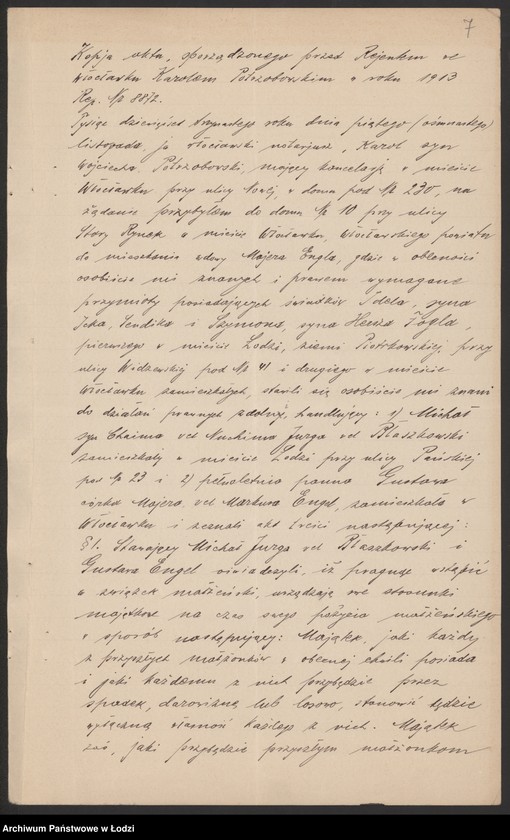 7
Kopja aktu, sporządzonego przed Rejentem we
Włocławku Karolem Potrzoborskim w roku 1913
Rep. № 887/2.
Tysiąc dziewięćset trzynastego roku dnia piątego (ośmnastego)
listopada, ja włocławski notarjusz, Karol syn
Wojciecha, Potrzoborski, mający kancelarję w mieście
Włocławku przy ulicy Nowej, w domu pod № 230, na
żądanie przybyłem do domu № 10 przy ulicy
Stary Rynek w mieście Włocławku, Włocławskiego powiatu
do mieszkania wdowy Majera Engla, gdzie w obecności
osobiście mi znanych i prawem wymagane
przymioty posiadających świadków Idela, syna
Icka, Sendika i Szymona, syna Henocha Fogla,
pierwszego w mieście Łodzi, ziemi Piotrkowskiej, przy
ulicy Widzewskiej pod № 41 i drugiego w mieście
Włocławku zamieszkałych, stawili się osobiście mi znani
do działań prawnych zdolni, handlujący: 1) Michał
syn Chaima vel Nuchima Jurga vel Błaszkowski
zamieszkały w mieście Łodzi przy ulicy Pańskiej
pod № 23 i 2) pełnoletnia panna Gustawa
córka Majera vel Markusa Engel, zamieszkała w
Włocławku i zeznali akt treści następującej:
§ 1. Stawający Michał Jurga vel Błaszkowski i
Gustawa Engel oświadczyli, iż pragnąc wstąpić
w związek małżeński, urządzają swe stosunki
majątkowe na czas swego pożycia małżeńskiego
w sposób następujący: Majątek, jaki każdy
z przyszłych małżonków w obecnej chwili posiada
i jaki każdemu z nich przybędzie przez
spadek, darowiznę lub losowo, stanowić będzie
wyłączną własność każdego z nich. Majątek
zaś, jaki przybędzie przyszłym małżonkom
Archiwum Państwowe w Łodzi